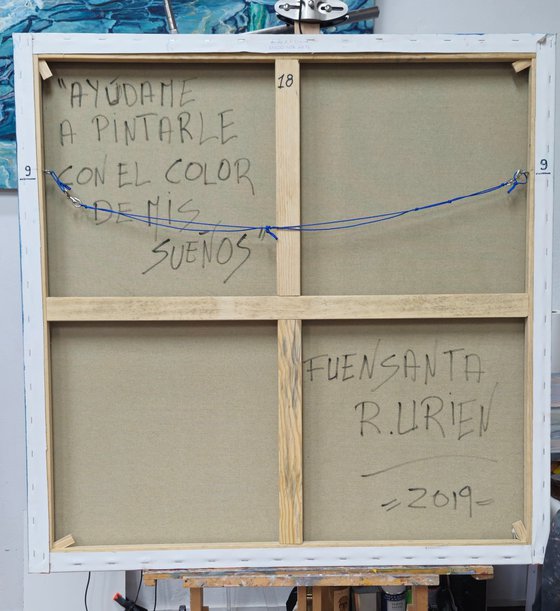 "AYÚDAME
18
A PINTARLE
CON EL COLOR
9
9
DE MIS
SUEÑOS"
FUENSANTA
R. URIEN
=2019=